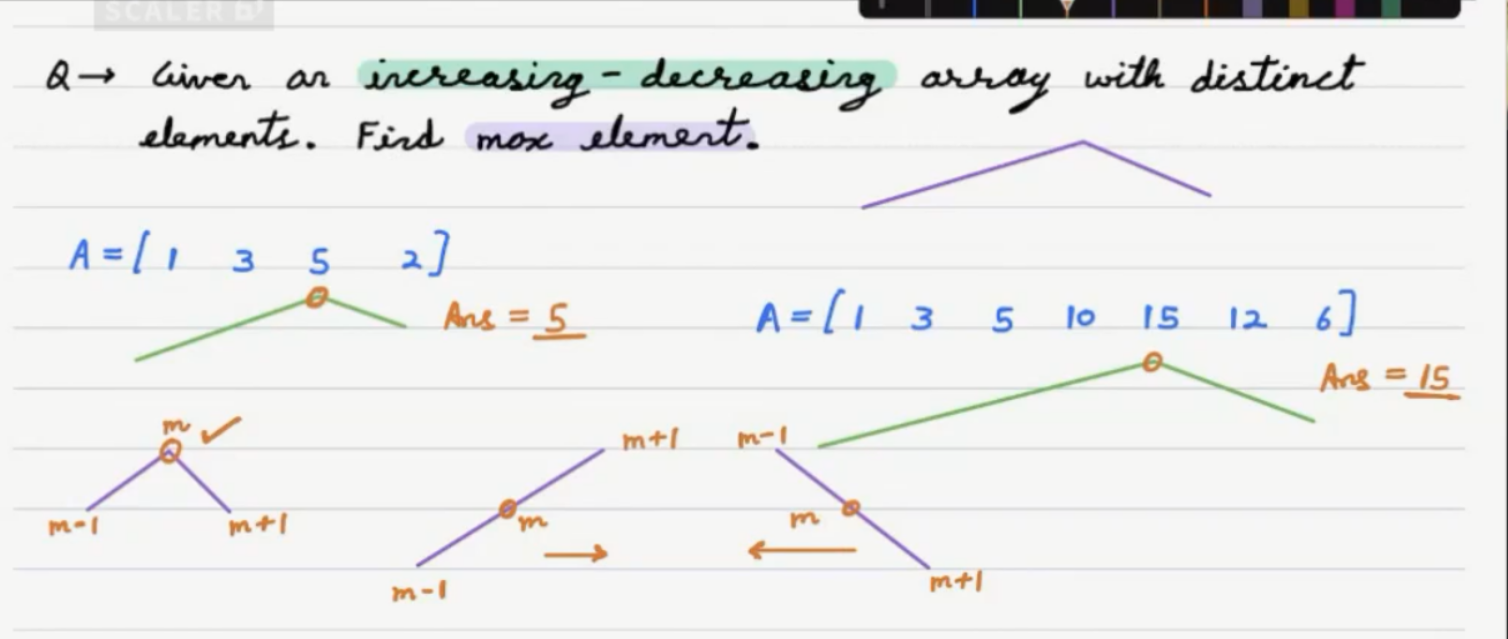 SCALER
Q → Given an increasing - decreasing array with distinct
elements. Find max element.
A = [ 1 3 5 2 ]
Ans = 5
A = [ 1 3 5 10 15 12 6 ]
Ans = 15
m ✓
m-1
m+1
m+1
m
→
m-1
m-1
m
←
m+1